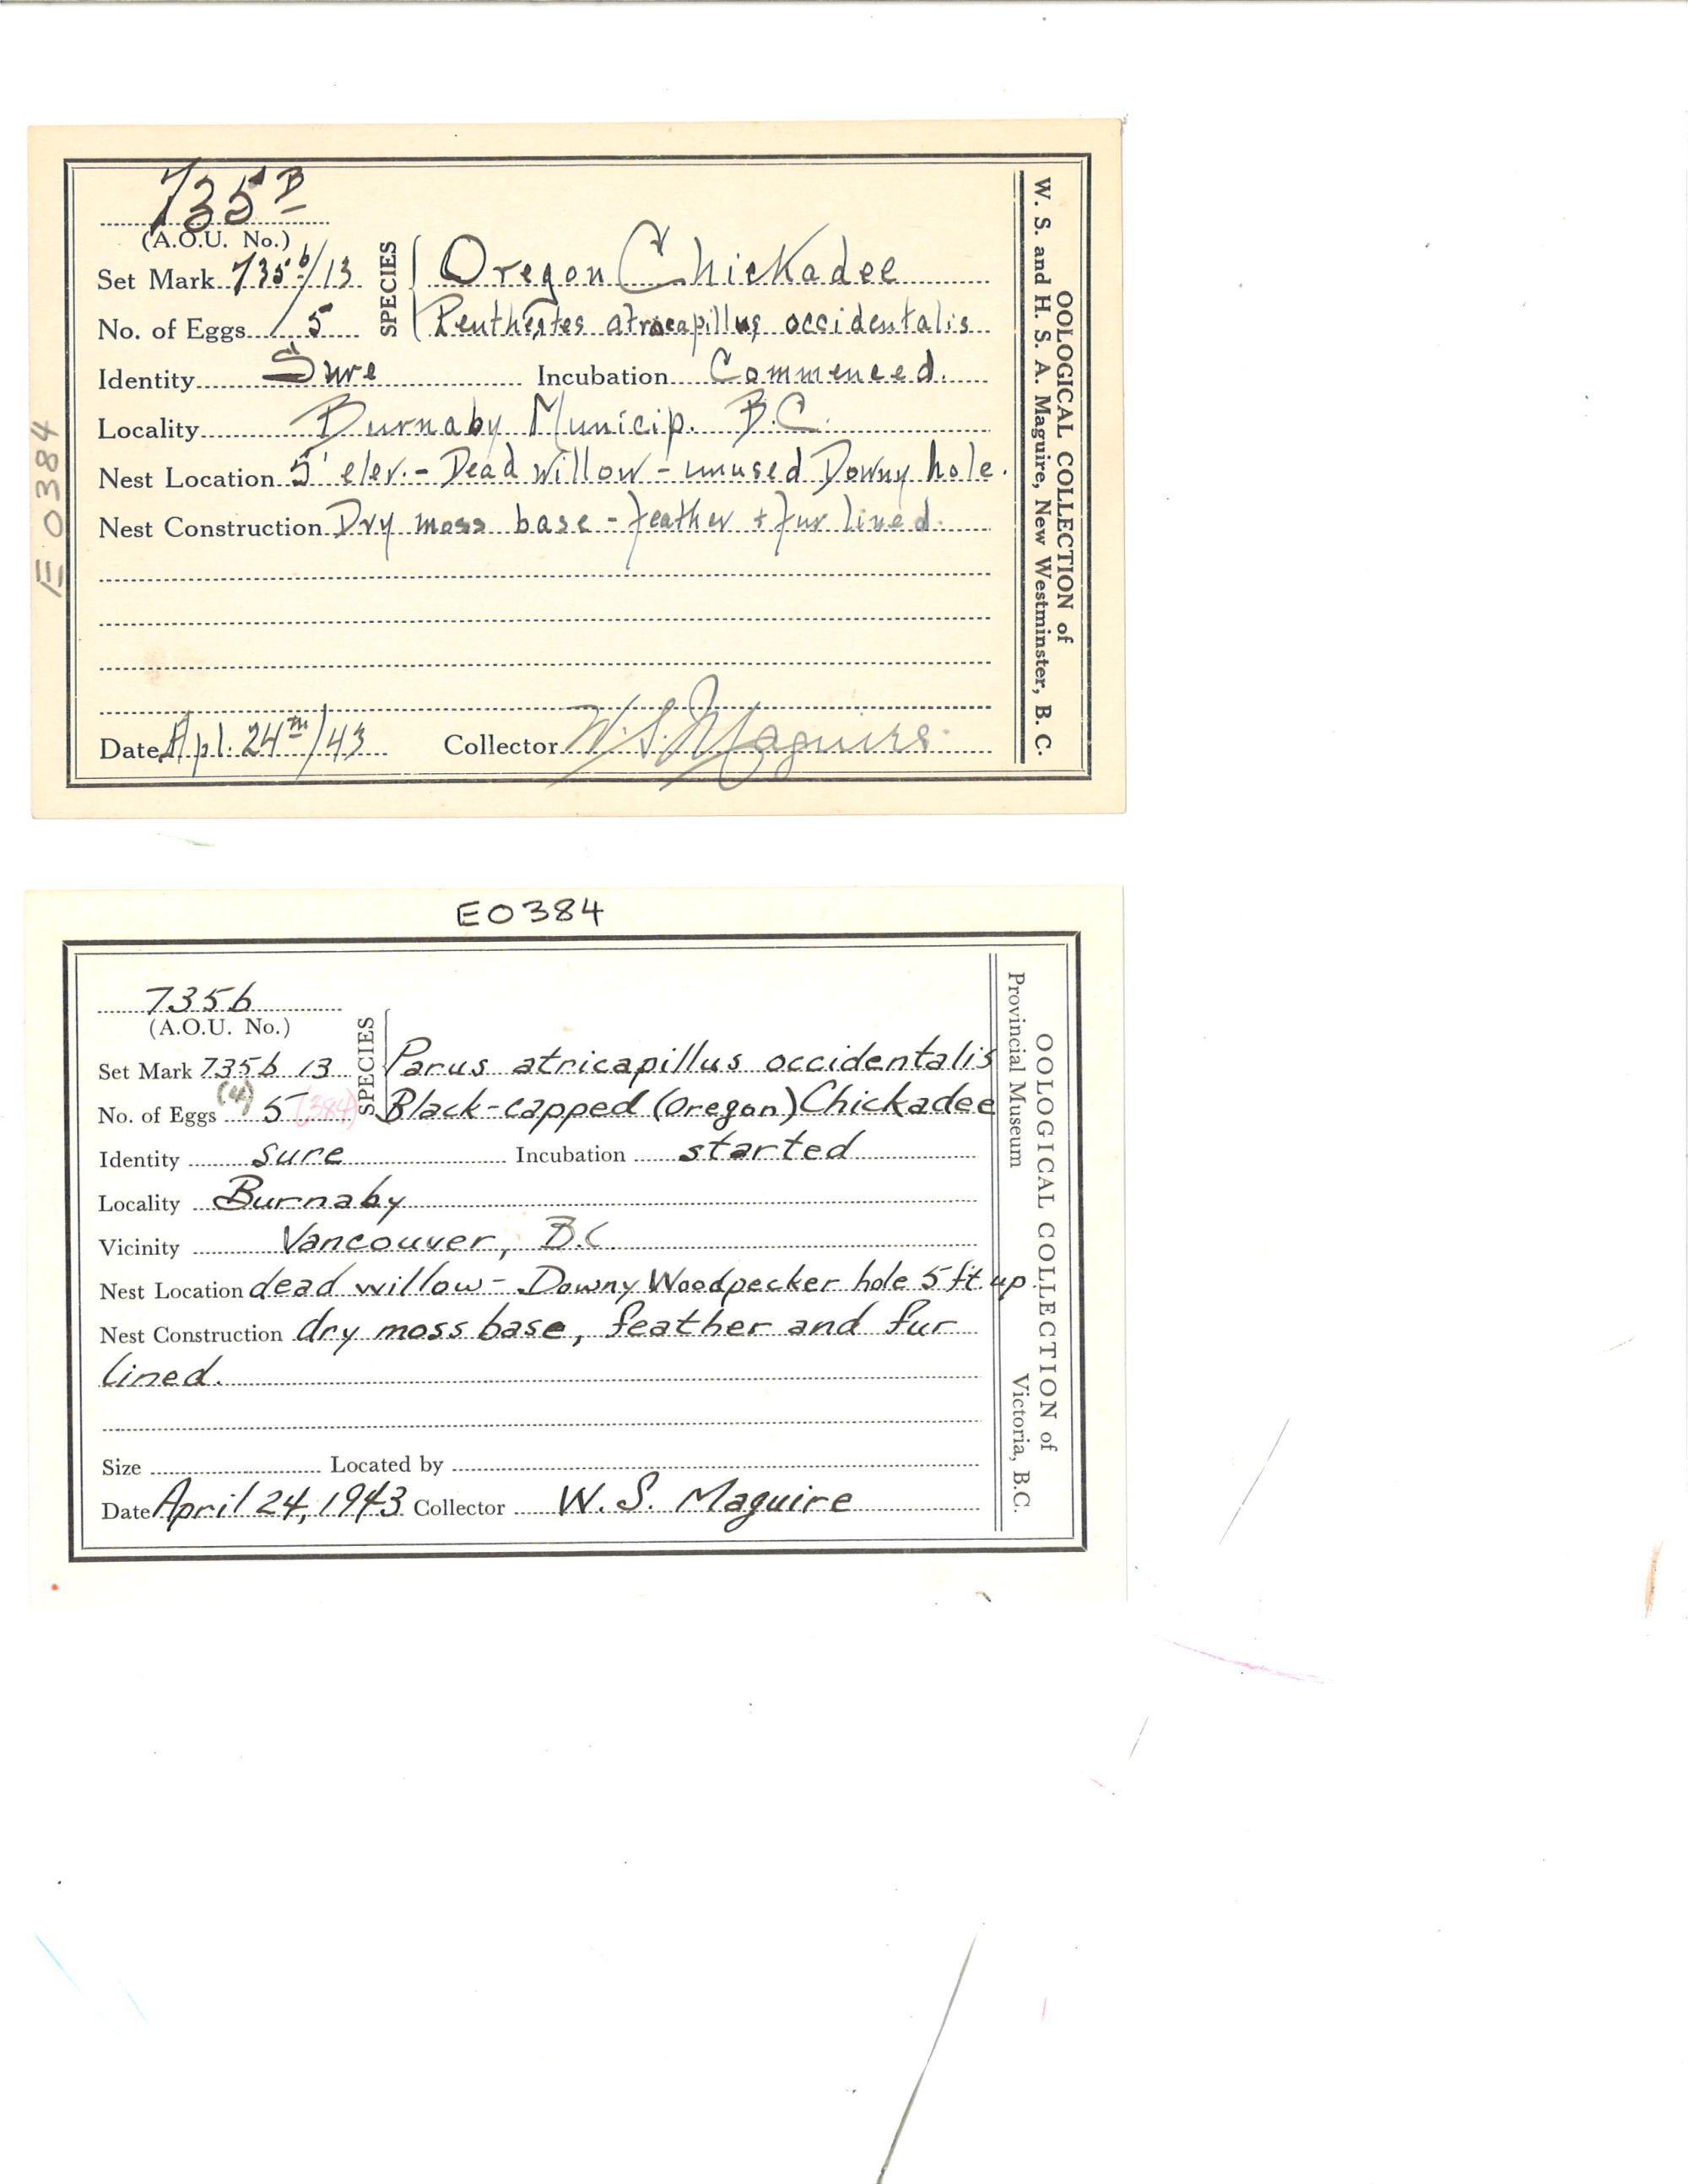 735 B
(A.O.U. No.)
Set Mark 735 b/13
No. of Eggs 5
SPECIES
Oregon Chickadee
Penthestes atrocapillus occidentalis
Identity Sure Incubation Commenced.
Locality Burnaby Municip. B.C.
Nest Location 5' elev. - Dead willow - unused Downy hole.
Nest Construction Dry moss base - feather + fur lined.
Date Apl. 24th/43 Collector W.S. Maguire.
OOLOGICAL COLLECTION of
W. S. and H. S. A. Maguire, New Westminster, B. C.
E 0384
E0384
735b
(A.O.U. No.)
Set Mark 735b 13
No. of Eggs (4) 5 (384)
SPECIES
Parus atricapillus occidentalis
Black-capped (Oregon) Chickadee
Identity sure Incubation started
Locality Burnaby
Vicinity Vancouver, B.C.
Nest Location dead willow - Downy Woodpecker hole 5 ft. up.
Nest Construction dry moss base, feather and fur
lined.
Size Located by
Date April 24, 1943 Collector W. S. Maguire
OOLOGICAL COLLECTION of
Provincial Museum Victoria, B.C.